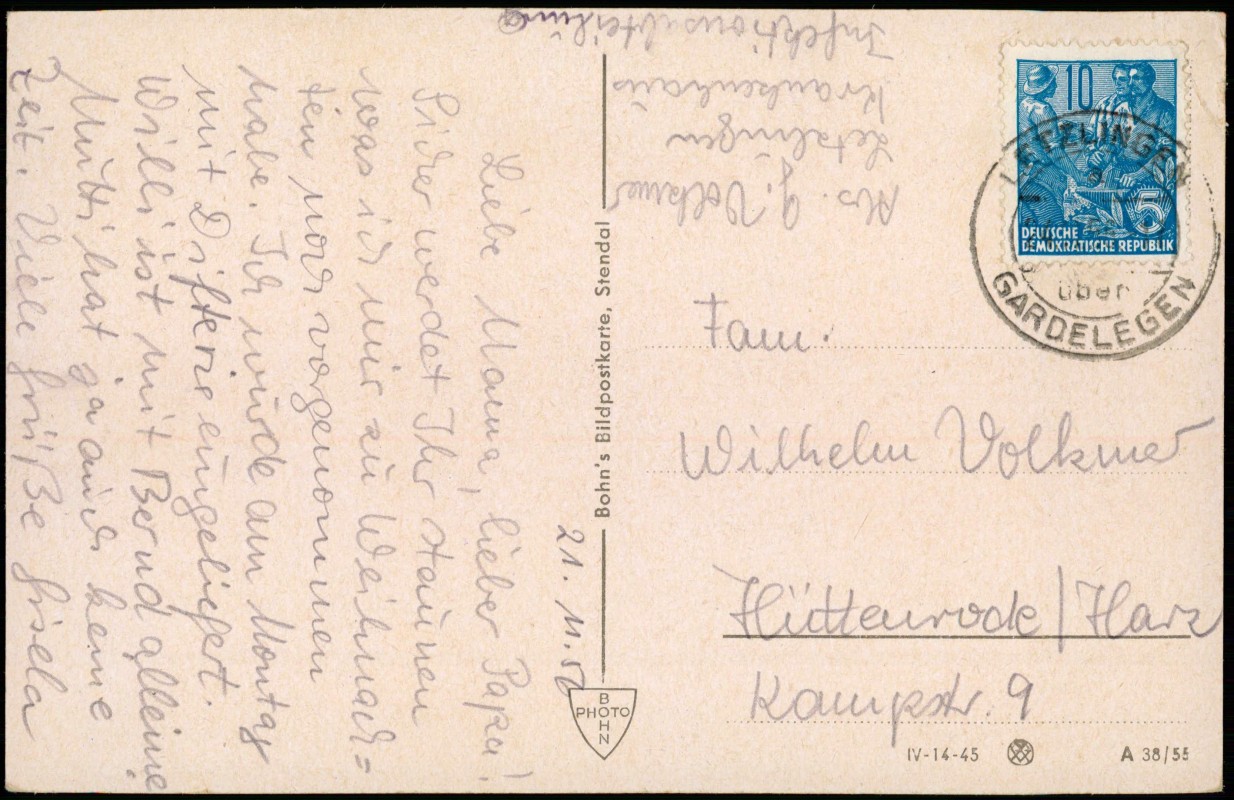 21. 11. 5
Liebe Mama, lieber Papa!
Sicher werdet Ihr staunen
was ich mir zu Weihnach=
ten noch vorgenommen
habe. Ich wurde am Montag
mit Difterie eingeliefert.
Willi ist mit Bernd alleine,
Mutti hat ja auch keine
Zeit. Viele Grüße Gisela
Abs. G. Volkmer
Letzlingen
Krankenhaus
Infektionsabteilung
Bohn's Bildpostkarte, Stendal
BOHN
PHOTO
10
5
DEUTSCHE
DEMOKRATISCHE REPUBLIK
LETZLINGEN
über
GARDELEGEN
Fam.
Wilhelm Volkmer
Hüttenrode/Harz
Kampstr. 9
IV-14-45
A 38/55